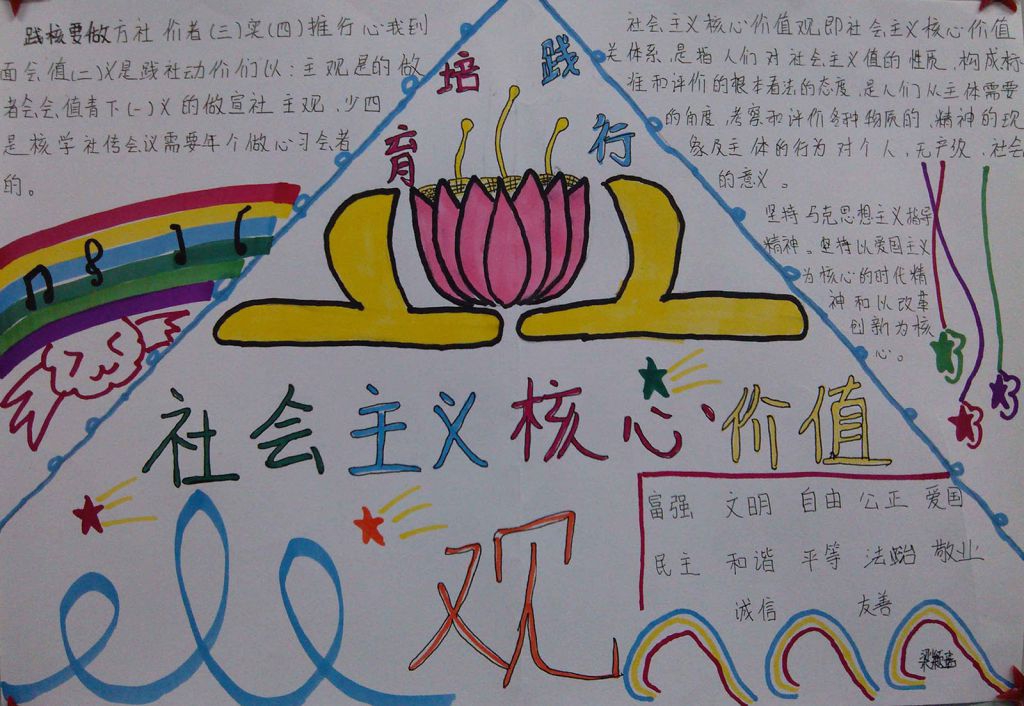 践核要做方社价者(三)实(四)推行心我到
面会值(二)义是践社动价们以主观是的做
者会会值青下(一)义的做宣社主观,少四
是核学社传会议需要年个做心习会者
的。
培 践
育 行
社会主义核心价值观,即社会主义核心价值
关体系,是指人们对社会主义值的性质、构成标
准和评价的根本看法的态度,是人们从主体需要
的角度,考察和评价各种物质的、精神的现
象及主体的行为对个人、无产级、社会
的意义。
坚持马克思想主义指导
精神。坚持以爱国主义
为核心的时代精
神和以改革
创新为核
心。
社会主义核心价值
观
富强 文明 自由 公正 爱国
民主 和谐 平等 法治 敬业
诚信 友善